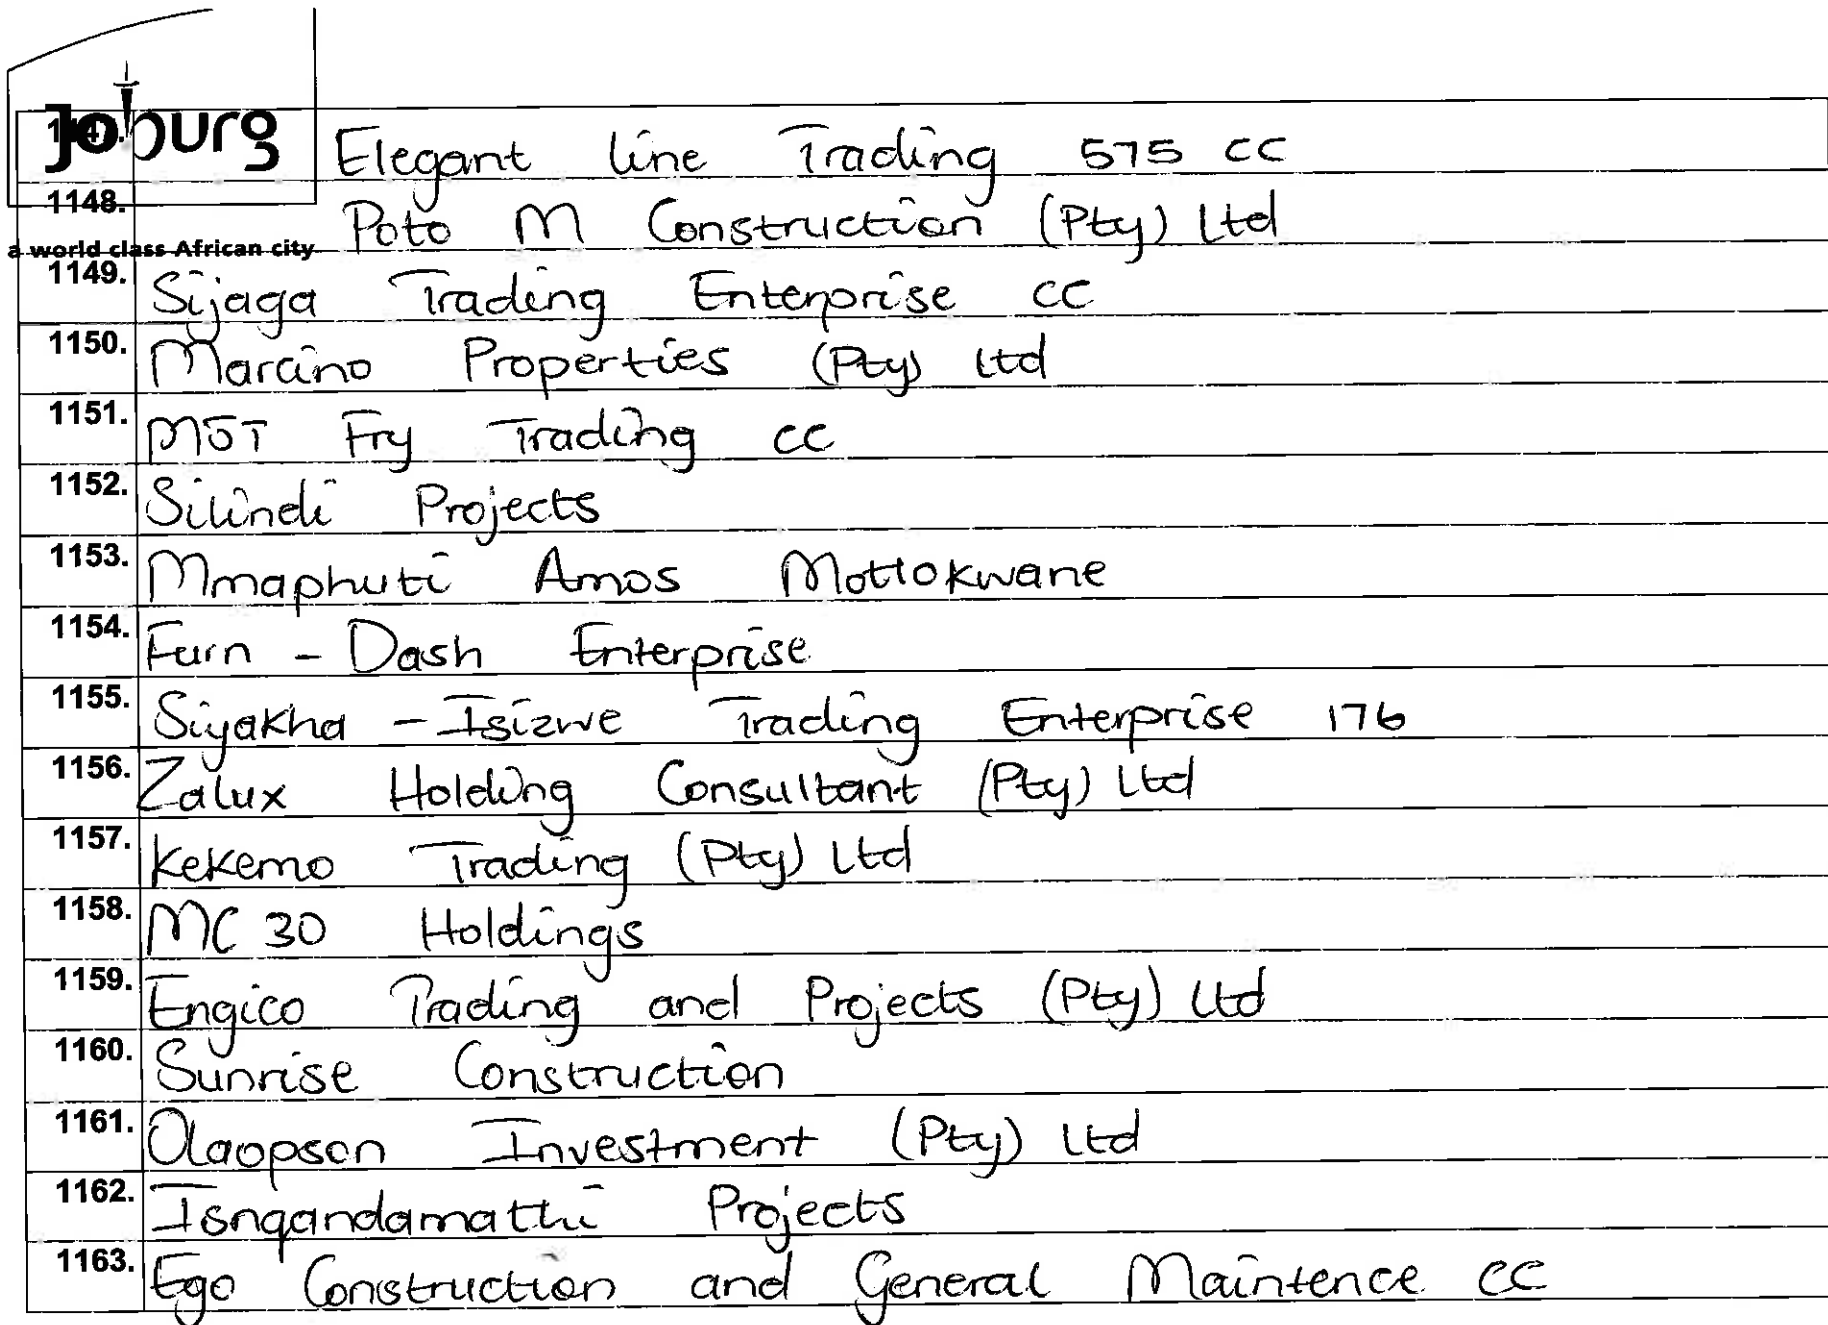 Joburg
1147. Elegant line Trading 575 CC
1148. Poto M Construction (Pty) Ltd
a world class African city
1149. Sijaga Trading Enterprise CC
1150. Marcino Properties (Pty) Ltd
1151. MJT Fry Trading CC
1152. Silindi Projects
1153. Mmaphuti Amos Motlokwane
1154. Furn - Dash Enterprise
1155. Siyakha - Isizwe Trading Enterprise 176
1156. Zalux Holding Consultant (Pty) Ltd
1157. Kekemo Trading (Pty) Ltd
1158. MC 30 Holdings
1159. Engico Trading and Projects (Pty) Ltd
1160. Sunrise Construction
1161. Olaopson Investment (Pty) Ltd
1162. Isnqandamathi Projects
1163. Ego Construction and General Maintence CC